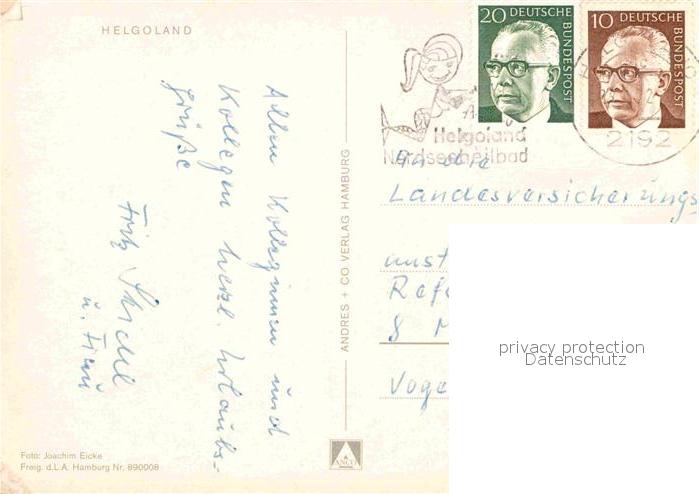 HELGOLAND
Allen Kolleginnen und
Kollegen herzl. Urlaubs-
grüße
Fritz
u. Frau
Foto: Joachim Eicke
Freig. d.L.A. Hamburg Nr. 890008
ANDRES + CO VERLAG HAMBURG
ANCO
20 DEUTSCHE BUNDESPOST
10 DEUTSCHE BUNDESPOST
2192
Helgoland
Nordseeheilbad
An die
Landesversicherungs
anst
Refe
8 M
Voge
privacy protection
Datenschutz